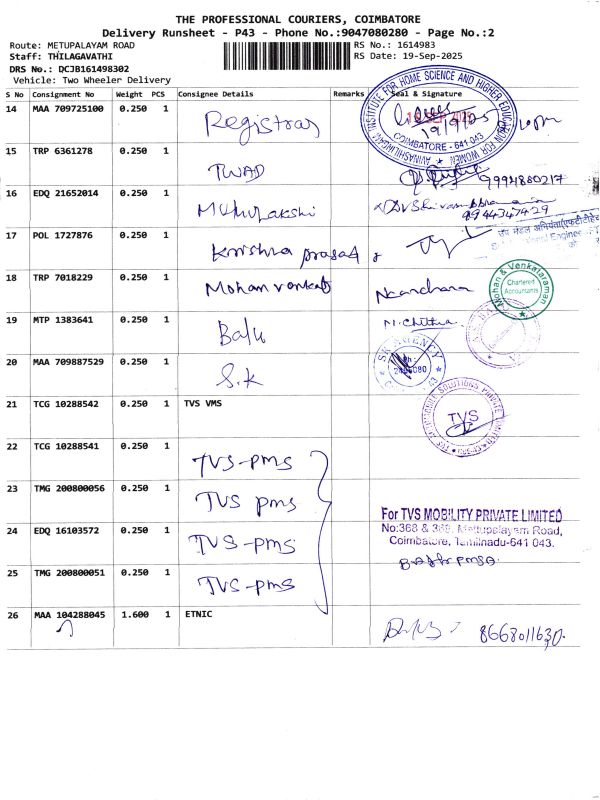 THE PROFESSIONAL COURIERS, COIMBATORE
Delivery Runsheet - P43 - Phone No.:9047080280 - Page No.:2
Route: METUPALAYAM ROAD RS No.: 1614983
Staff: THILAGAVATHI RS Date: 19-Sep-2025
DRS No.: DCJB161498302
Vehicle: Two Wheeler Delivery
S No Consignment No Weight PCS Consignee Details Remarks Seal & Signature
14 MAA 709725100 0.250 1 Registrar
AVINASHILINGAM INSTITUTE FOR HOME SCIENCE AND HIGHER EDUCATION FOR WOMEN
COIMBATORE - 641 043
15 TRP 6361278 0.250 1 TWAD 9994880217
16 EDQ 21652014 0.250 1 Muthulakshi
9944347429
17 POL 1727876 0.250 1 Krrishna prasad
18 TRP 7018229 0.250 1 Mohan venkat
Mohan & Venkataraman
Chartered Accountants
19 MTP 1383641 0.250 1 Balu M. Chithra
20 MAA 709887529 0.250 1 S.K
SK AGENCY
21 TCG 10288542 0.250 1 TVS VMS
TVS
22 TCG 10288541 0.250 1 TVS-PMS
23 TMG 200800056 0.250 1 TVS PMS
24 EDQ 16103572 0.250 1 TVS-PMS
For TVS MOBILITY PRIVATE LIMITED
No:368 & 369, Mettupalayam Road,
Coimbatore, Tamilnadu-641 043.
25 TMG 200800051 0.250 1 TVS-PMS
26 MAA 104288045 1.600 1 ETNIC 8668011630.